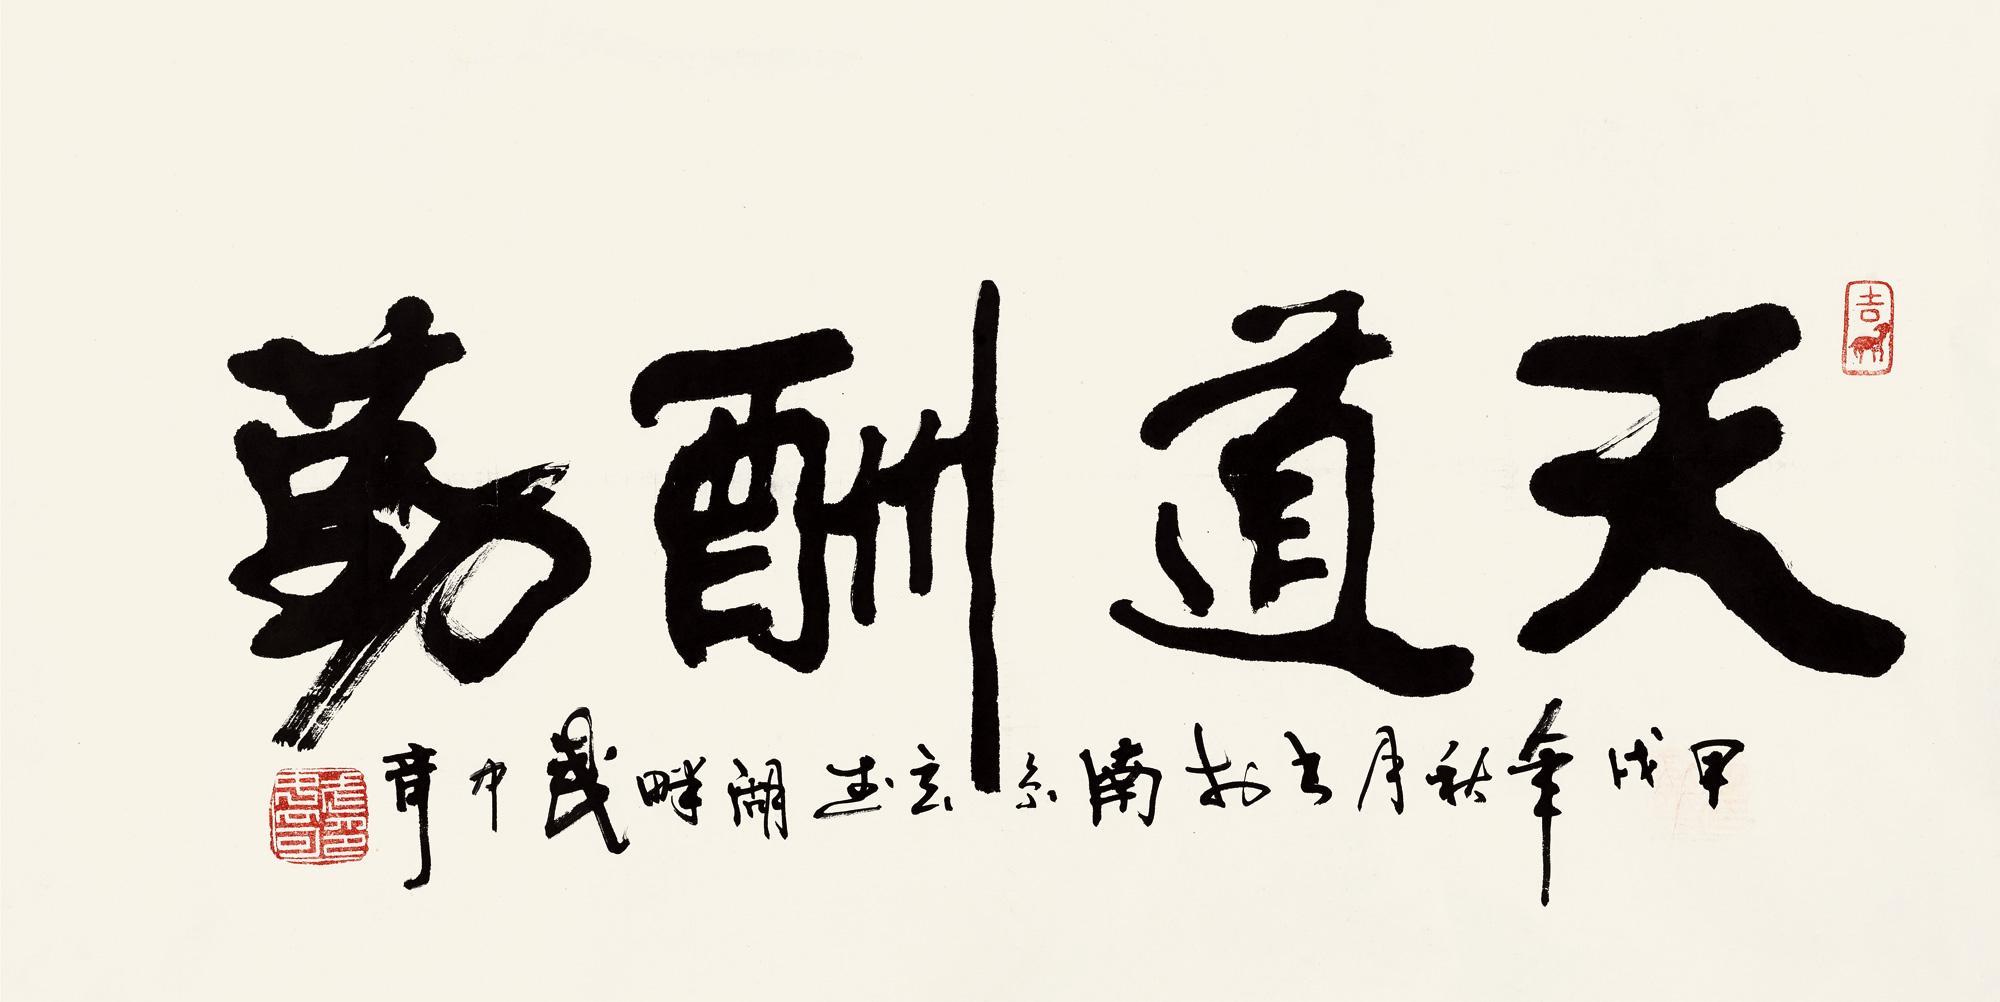 天道酬勤
甲戌年秋月書於南京玄武湖畔武中奇
吉